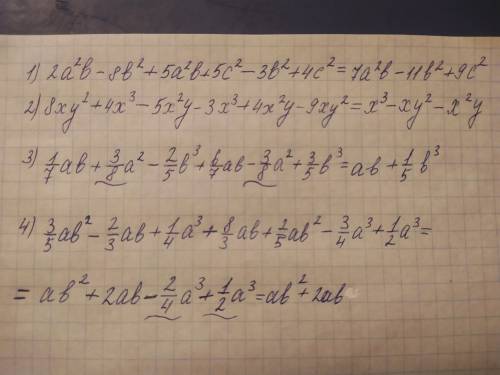 1) 2a²b - 8b² + 5a²b + 5c² - 3b² + 4c² = 7a²b - 11b² + 9c²
2) 8xy² + 4x³ - 5x²y - 3x³ + 4x²y - 9xy² = x³ - xy² - x²y
3) 1/7 ab + 3/8 a² - 2/5 b³ + 6/7 ab - 3/8 a² + 3/5 b³ = ab + 1/5 b³
4) 3/5 ab² - 2/3 ab + 1/4 a³ + 8/3 ab + 2/5 ab² - 3/4 a³ + 1/2 a³ =
= ab² + 2ab - 2/4 a³ + 1/2 a³ = ab² + 2ab